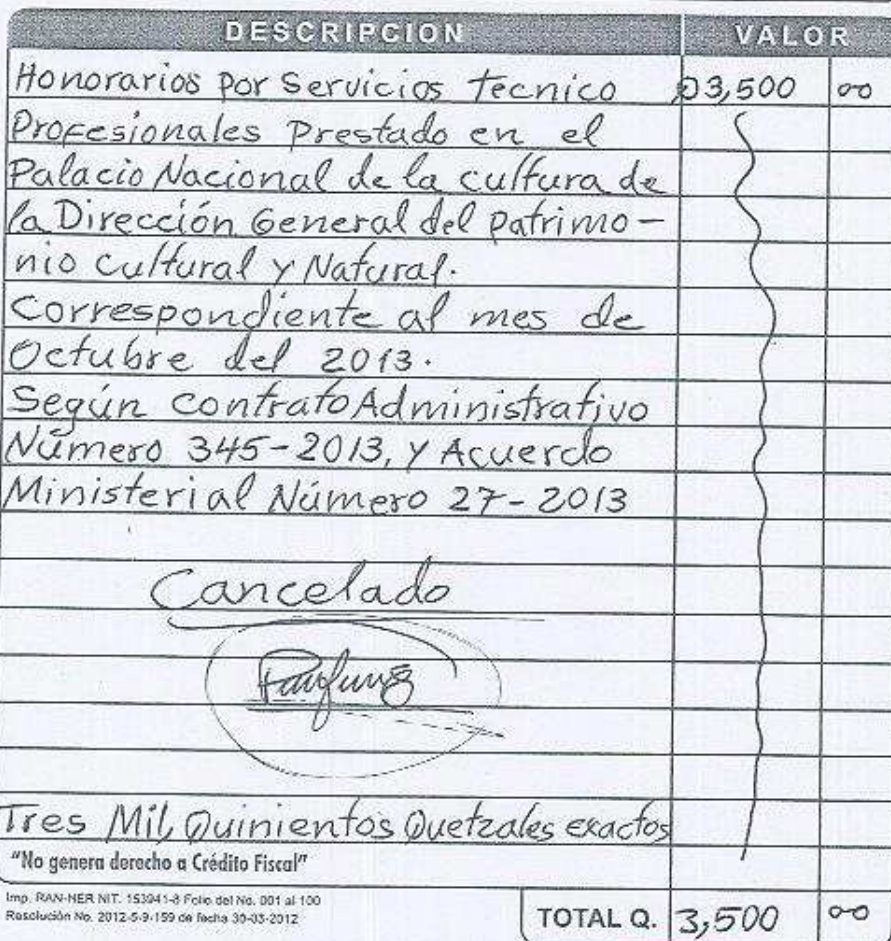 DESCRIPCION VALOR
Honorarios por Servicios tecnico Q3,500 00
Profesionales Prestado en el
Palacio Nacional de la cultura de
la Dirección General del patrimo-
nio cultural y Natural.
Correspondiente al mes de
Octubre del 2013.
Según contrato Administrativo
Número 345-2013, y Acuerdo
Ministerial Número 27-2013
Cancelado
Tres Mil, Quinientos Quetzales exactos
"No genera derecho a Crédito Fiscal"
Imp. RAN-HER NIT. 153941-8 Folio del No. 001 al 100
Resolución No. 2012-5-9-159 de fecha 30-03-2012
TOTAL Q. 3,500 00